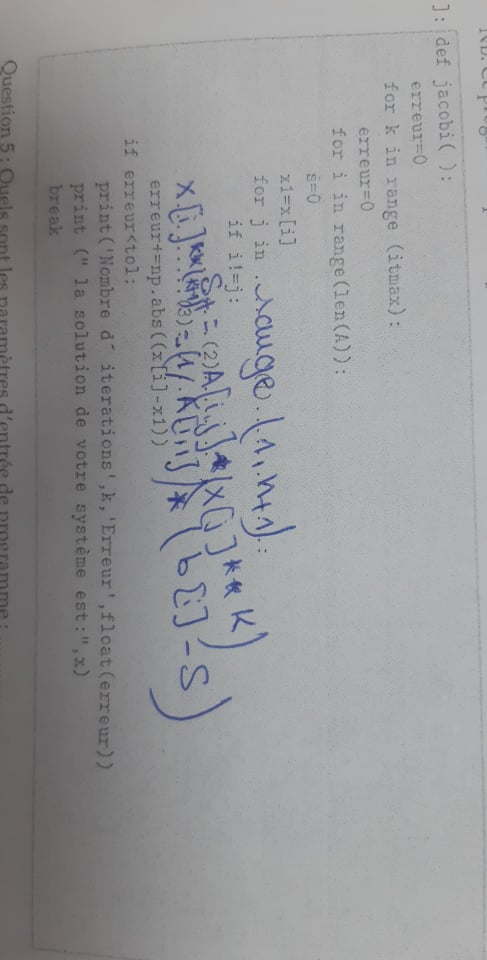 NB. Ce
]: def jacobi( ):
erreur=0
for k in range (itmax):
erreur=0
for i in range(len(A)):
s=0
x1=x[i]
for j in ..range..(.1,.n+1).:
if i!=j:
S+ = (2) A[i,j] * (x[j]**k)
x[i]**(k+1)....(3) = (1/A[i,i]) * (b[i]-S)
erreur+=np.abs((x[i]-x1))
if erreur<tol:
print('Nombre d´ iterations',k,'Erreur',float(erreur))
print (" la solution de votre système est:",x)
break
Question 5 : Quels sont les paramètres d'entrée de programme :